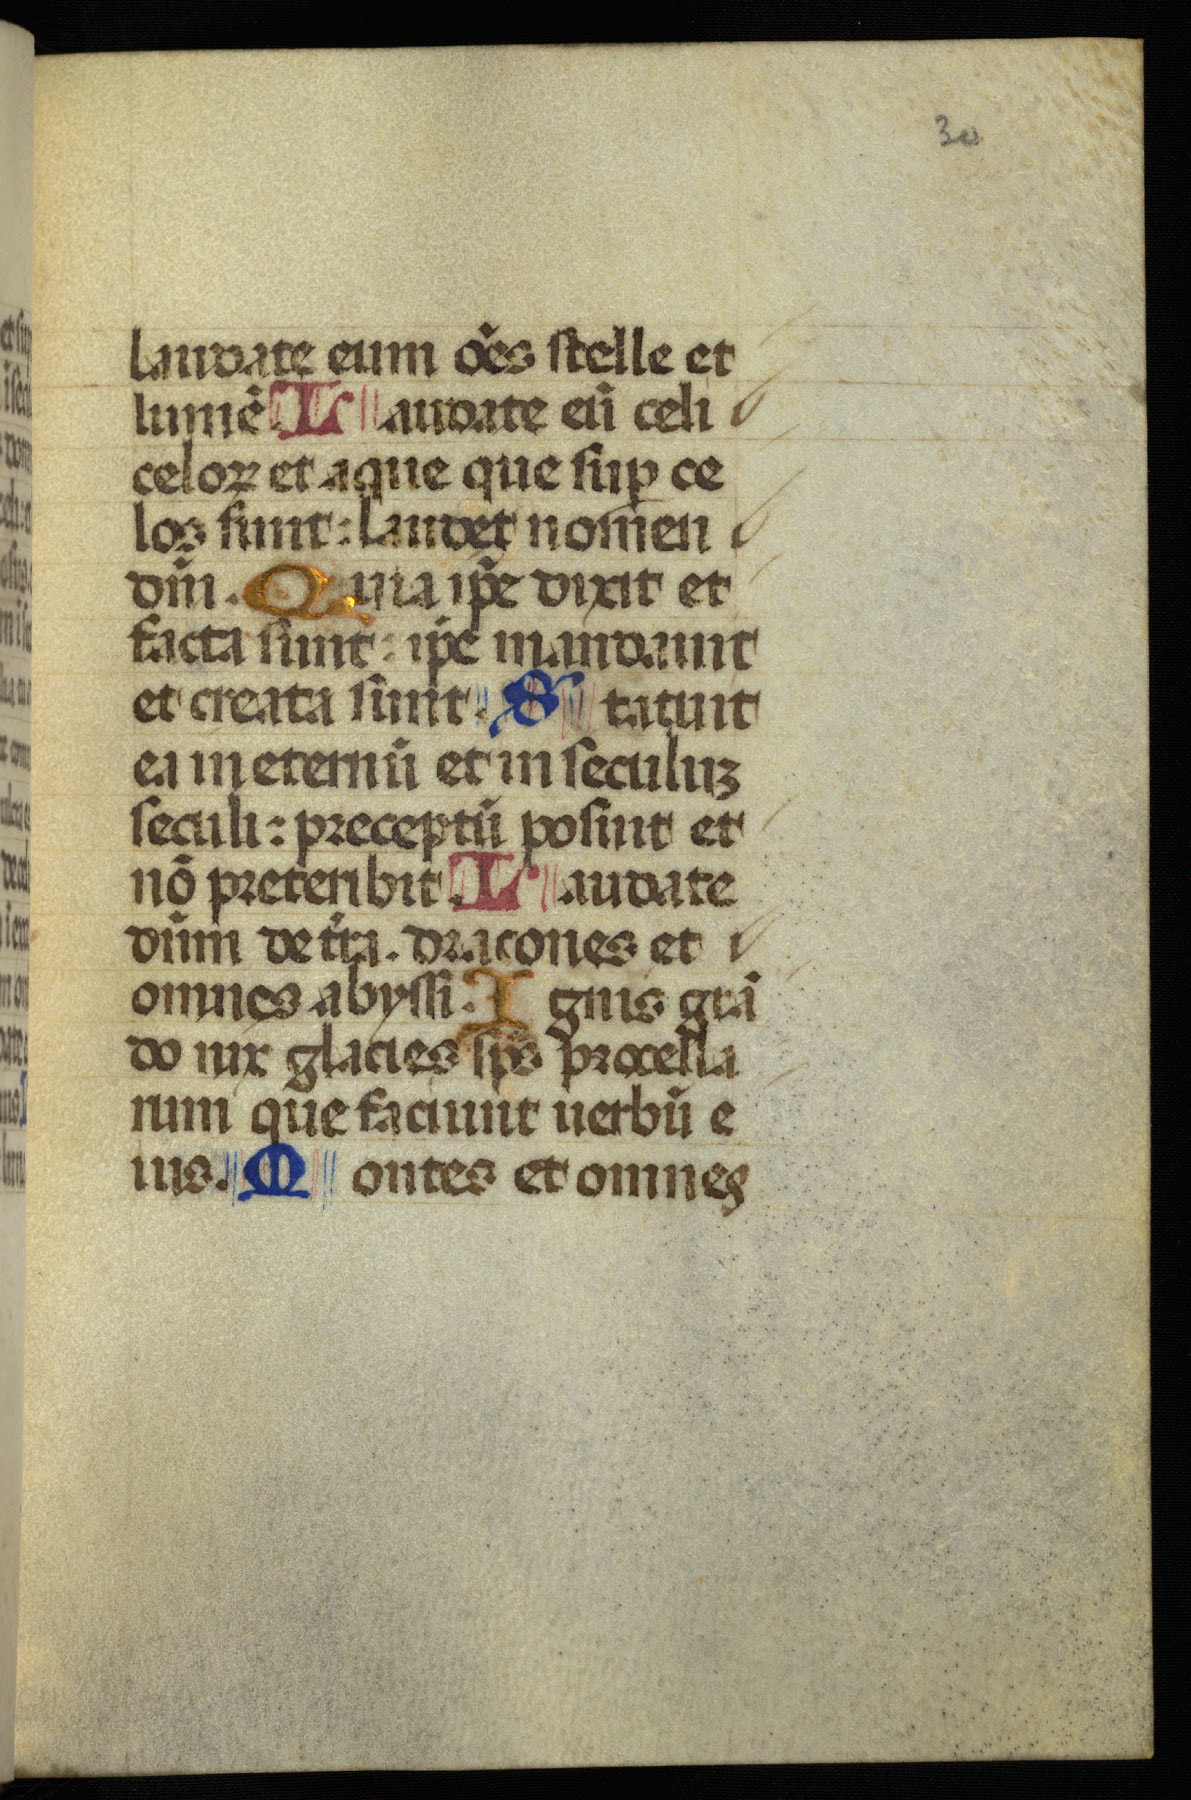 30
laudate eum oẽs stelle et
lumẽ. Laudate eũ celi
celoꝝ et aque que suꝑ ce
los sunt: laudet nomen
dñi. Quia ip̃e dixit et
facta sunt: ip̃e mandauit
et creata sunt. Statuit
ea in eternũ et in seculuꝫ
seculi: preceptũ posuit et
nõ preteribit. Laudate
dũm de t̃ra. dracones et
omnes abyssi. Ignis grã
do nix glacies sp̃s procella
rum que faciunt uerbũ e
ius. Montes et omnes